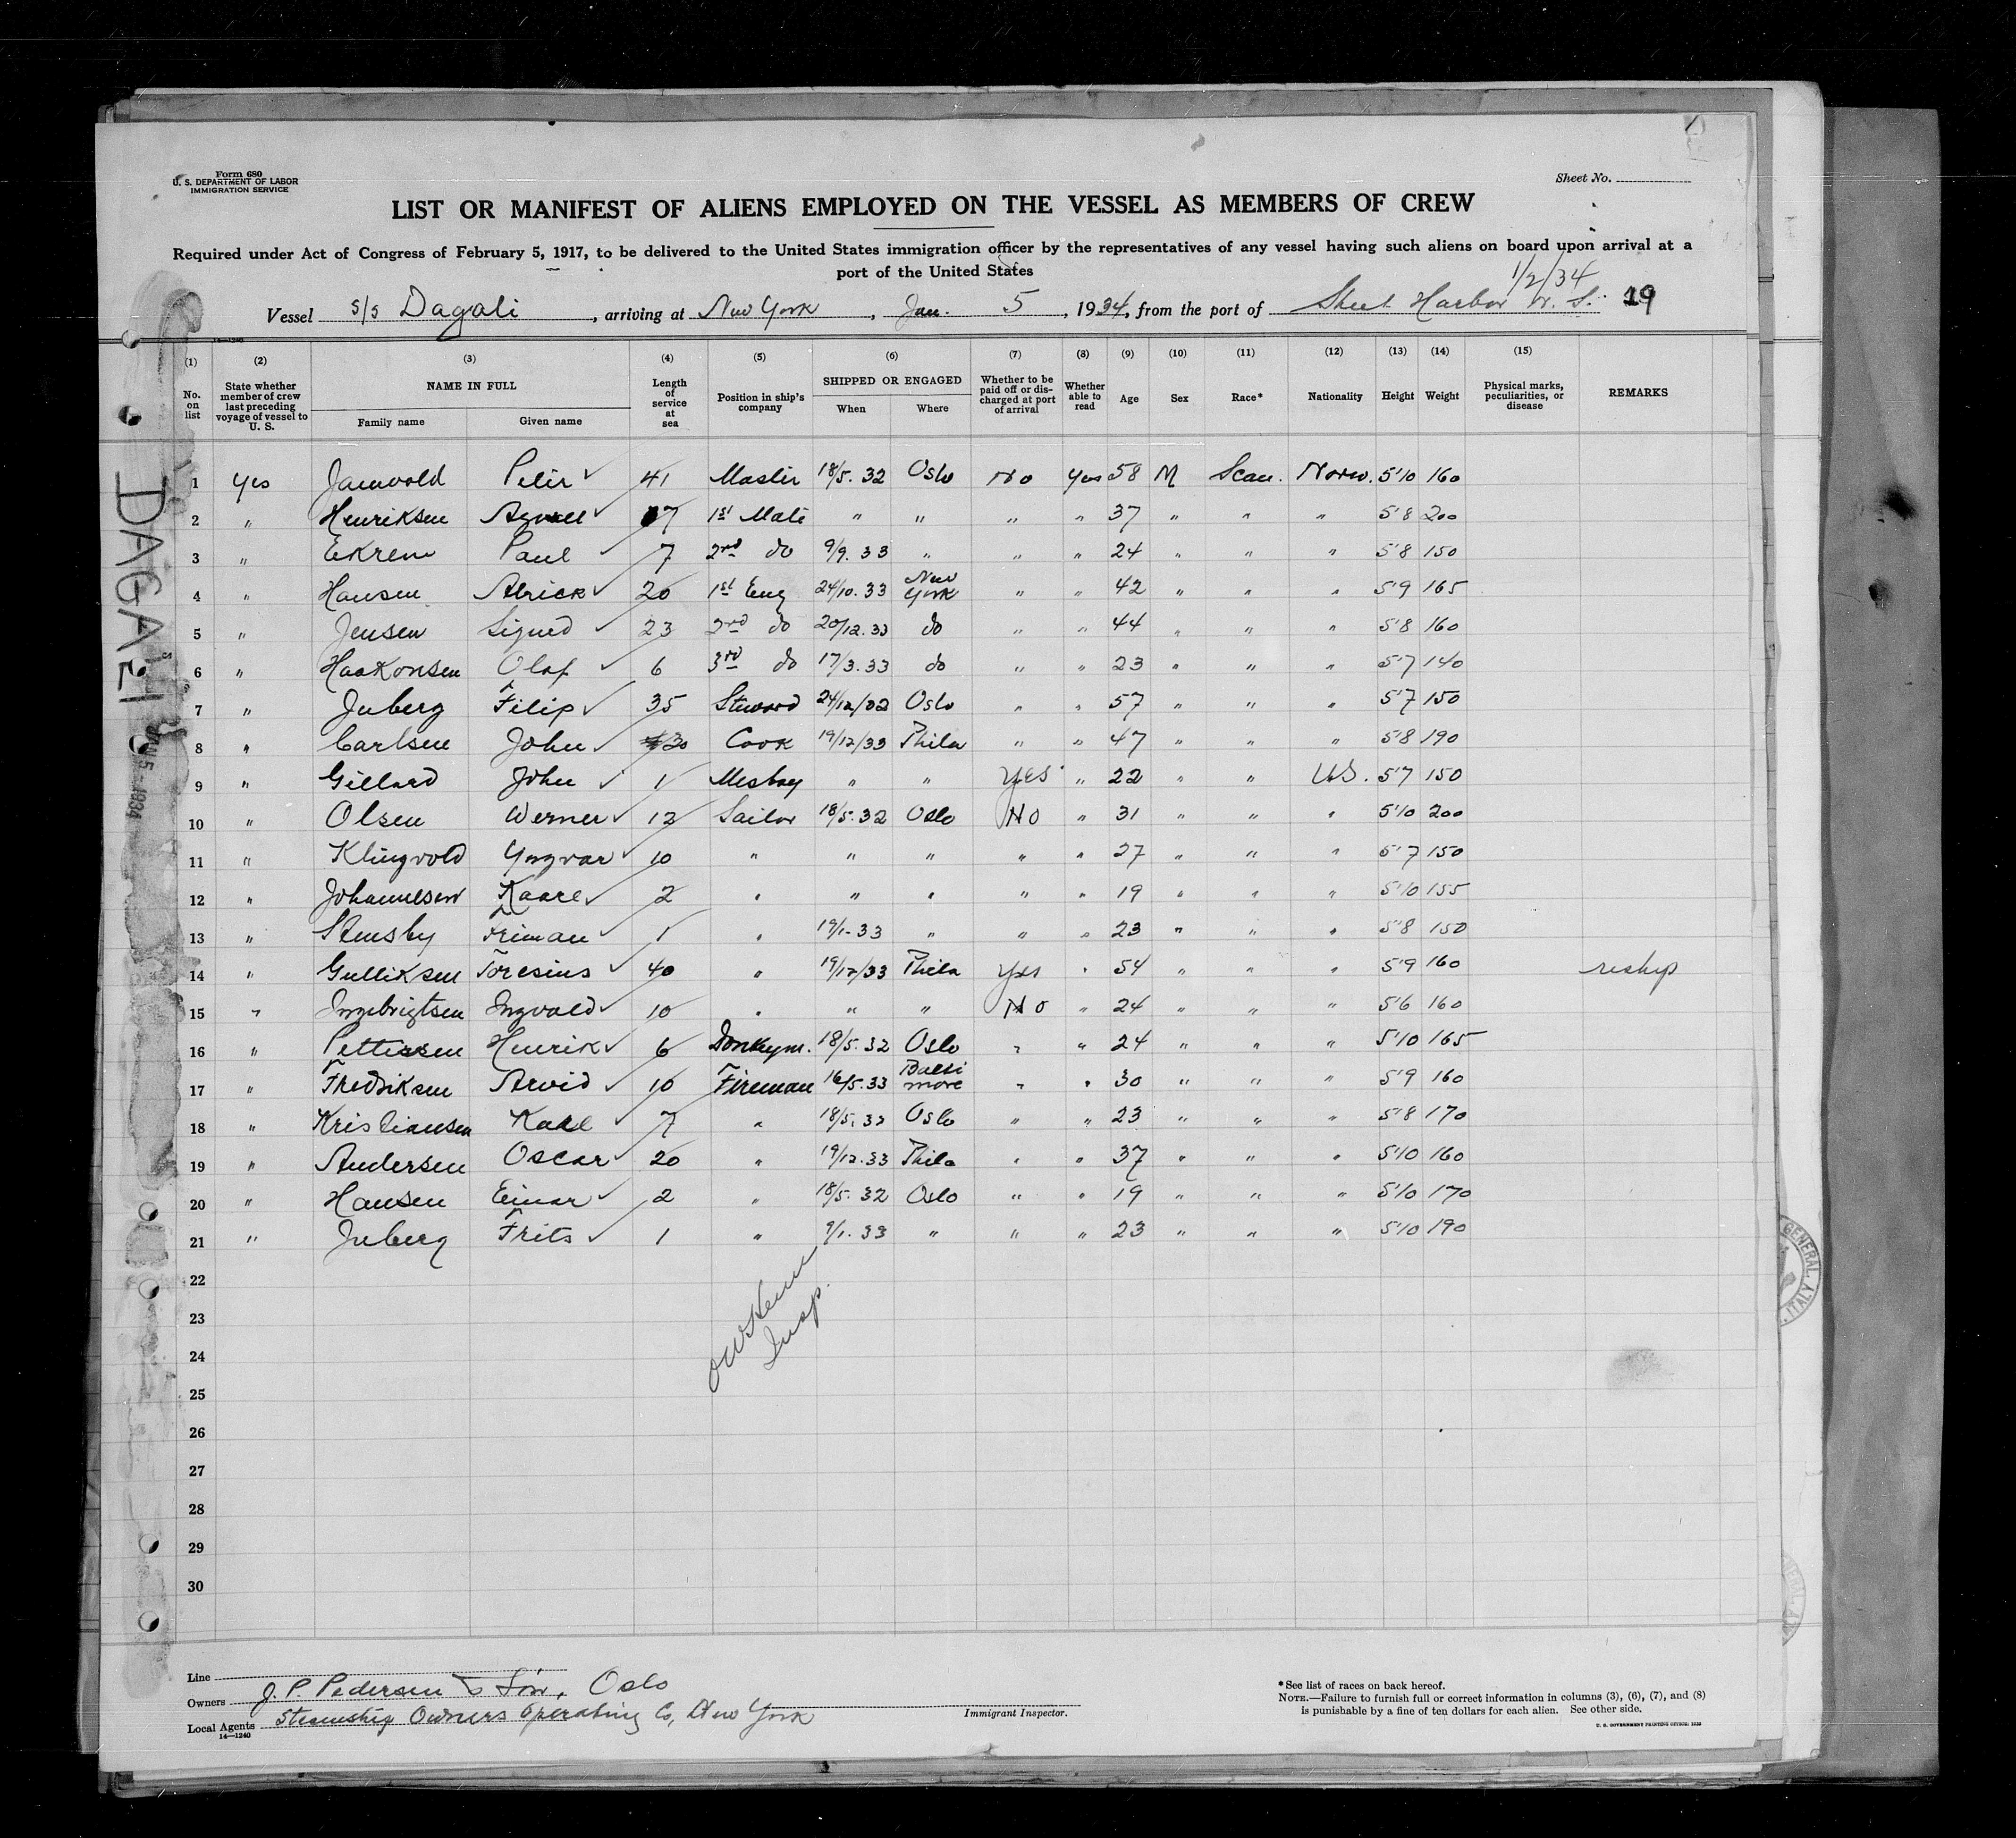 Form 680
U. S. DEPARTMENT OF LABOR
IMMIGRATION SERVICE
Sheet No.
LIST OR MANIFEST OF ALIENS EMPLOYED ON THE VESSEL AS MEMBERS OF CREW
Required under Act of Congress of February 5, 1917, to be delivered to the United States immigration officer by the representatives of any vessel having such aliens on board upon arrival at a
port of the United States
1/2/34
Vessel S/S Dagali, arriving at New York, Jan. 5, 1934, from the port of Sheet Harbor N. S. 19
(1) (2) (3) (4) (5) (6) (7) (8) (9) (10) (11) (12) (13) (14) (15)
No. on list State whether member of crew last preceding voyage of vessel to U. S. NAME IN FULL Family name Given name Length of service at sea Position in ship's company SHIPPED OR ENGAGED When Where Whether to be paid off or discharged at port of arrival Whether able to read Age Sex Race* Nationality Height Weight Physical marks, peculiarities, or disease REMARKS
1 Yes Jarnvold Peter 41 Master 18/5. 32 Oslo No Yes 58 M Scan. Norw. 5'10 160
2 " Henriksen 17 1st Mate " " " " 37 " " " 5'8 200
3 " Ekrem Paul 7 2nd do 9/9. 33 " " " 24 " " " 5'8 150
4 " Hansen Alrick 20 1st Eng 24/10. 33 New York " " 42 " " " 5'9 165
5 " Jensen Sigurd 23 2nd do 20/12. 33 do " " 44 " " " 5'8 160
6 " Haakonsen Olaf 6 3rd do 17/3. 33 do " " 23 " " " 5'7 140
7 " Juberg Filip 35 Steward 24/12/32 Oslo " " 57 " " " 5'7 150
8 " Carlsen John 30 Cook 19/12/33 Phila " " 47 " " " 5'8 190
9 " Gillard John 1 Mesboy " " Yes " 22 " " US. 5'7 150
10 " Olsen Werner 12 Sailor 18/5. 32 Oslo No " 31 " " " 5'10 200
11 " Klingvold Yngvar 10 " " " " " 27 " " " 5'7 150
12 " Johannesen Kaare 2 " " " " " 19 " " " 5'10 155
13 " Stensby Friman 1 " 19/1- 33 " " " 23 " " " 5'8 150
14 " Gulliksen Toresius 40 " 19/12/33 Phila Yes " 54 " " " 5'9 160 reship
15 " Ingebrigtsen Ingvald 10 " " " No " 24 " " " 5'6 160
16 " Pettersen Henrik 6 Donkeym. 18/5. 32 Oslo " " 24 " " " 5'10 165
17 " Fredriksen Arvid 10 Fireman 16/5. 33 Baltimore " " 30 " " " 5'9 160
18 " Kristiansen Karl 7 " 18/5. 32 Oslo " " 23 " " " 5'8 170
19 " Andersen Oscar 20 " 19/12. 33 Phila " " 37 " " " 5'10 160
20 " Hansen Einar 2 " 18/5. 32 Oslo " " 19 " " " 5'10 170
21 " Juberg Frits 1 " 9/1. 33 " " " 23 " " " 5'10 190
22
23
24
25
26
27
28
29
30
Insp.
DAGALI
JAN 5 - 1934
Line
Owners J. P. Pedersen & Søn, Oslo
Local Agents Steamship Owners Operating Co, New York
14—1240
Immigrant Inspector.
*See list of races on back hereof.
NOTE.—Failure to furnish full or correct information in columns (3), (6), (7), and (8)
is punishable by a fine of ten dollars for each alien. See other side.
GENERAL
ITALY